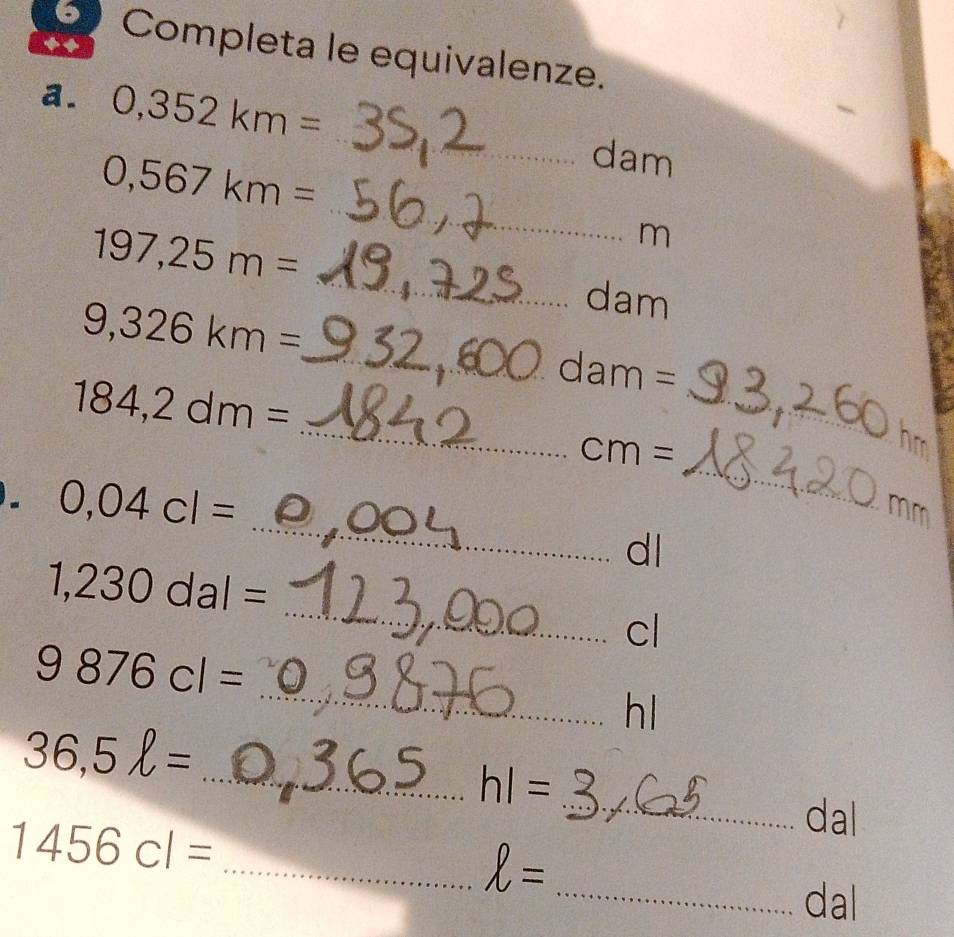 6 Completa le equivalenze.
a. 0,352 km = 35,2 dam
0,567 km = 56,7 m
197,25 m = 19,725 dam
9,326 km = 932,600 dam = 93,260 hm
184,2 dm = 1842 cm = 18420 mm
. 0,04 cl = 0,004 dl
1,230 dal = 123,000 cl
9 876 cl = 0,9876 hl
36,5 ℓ = 0,365 hl = 3,65 dal
1 456 cl = ............ ℓ = ............ dal